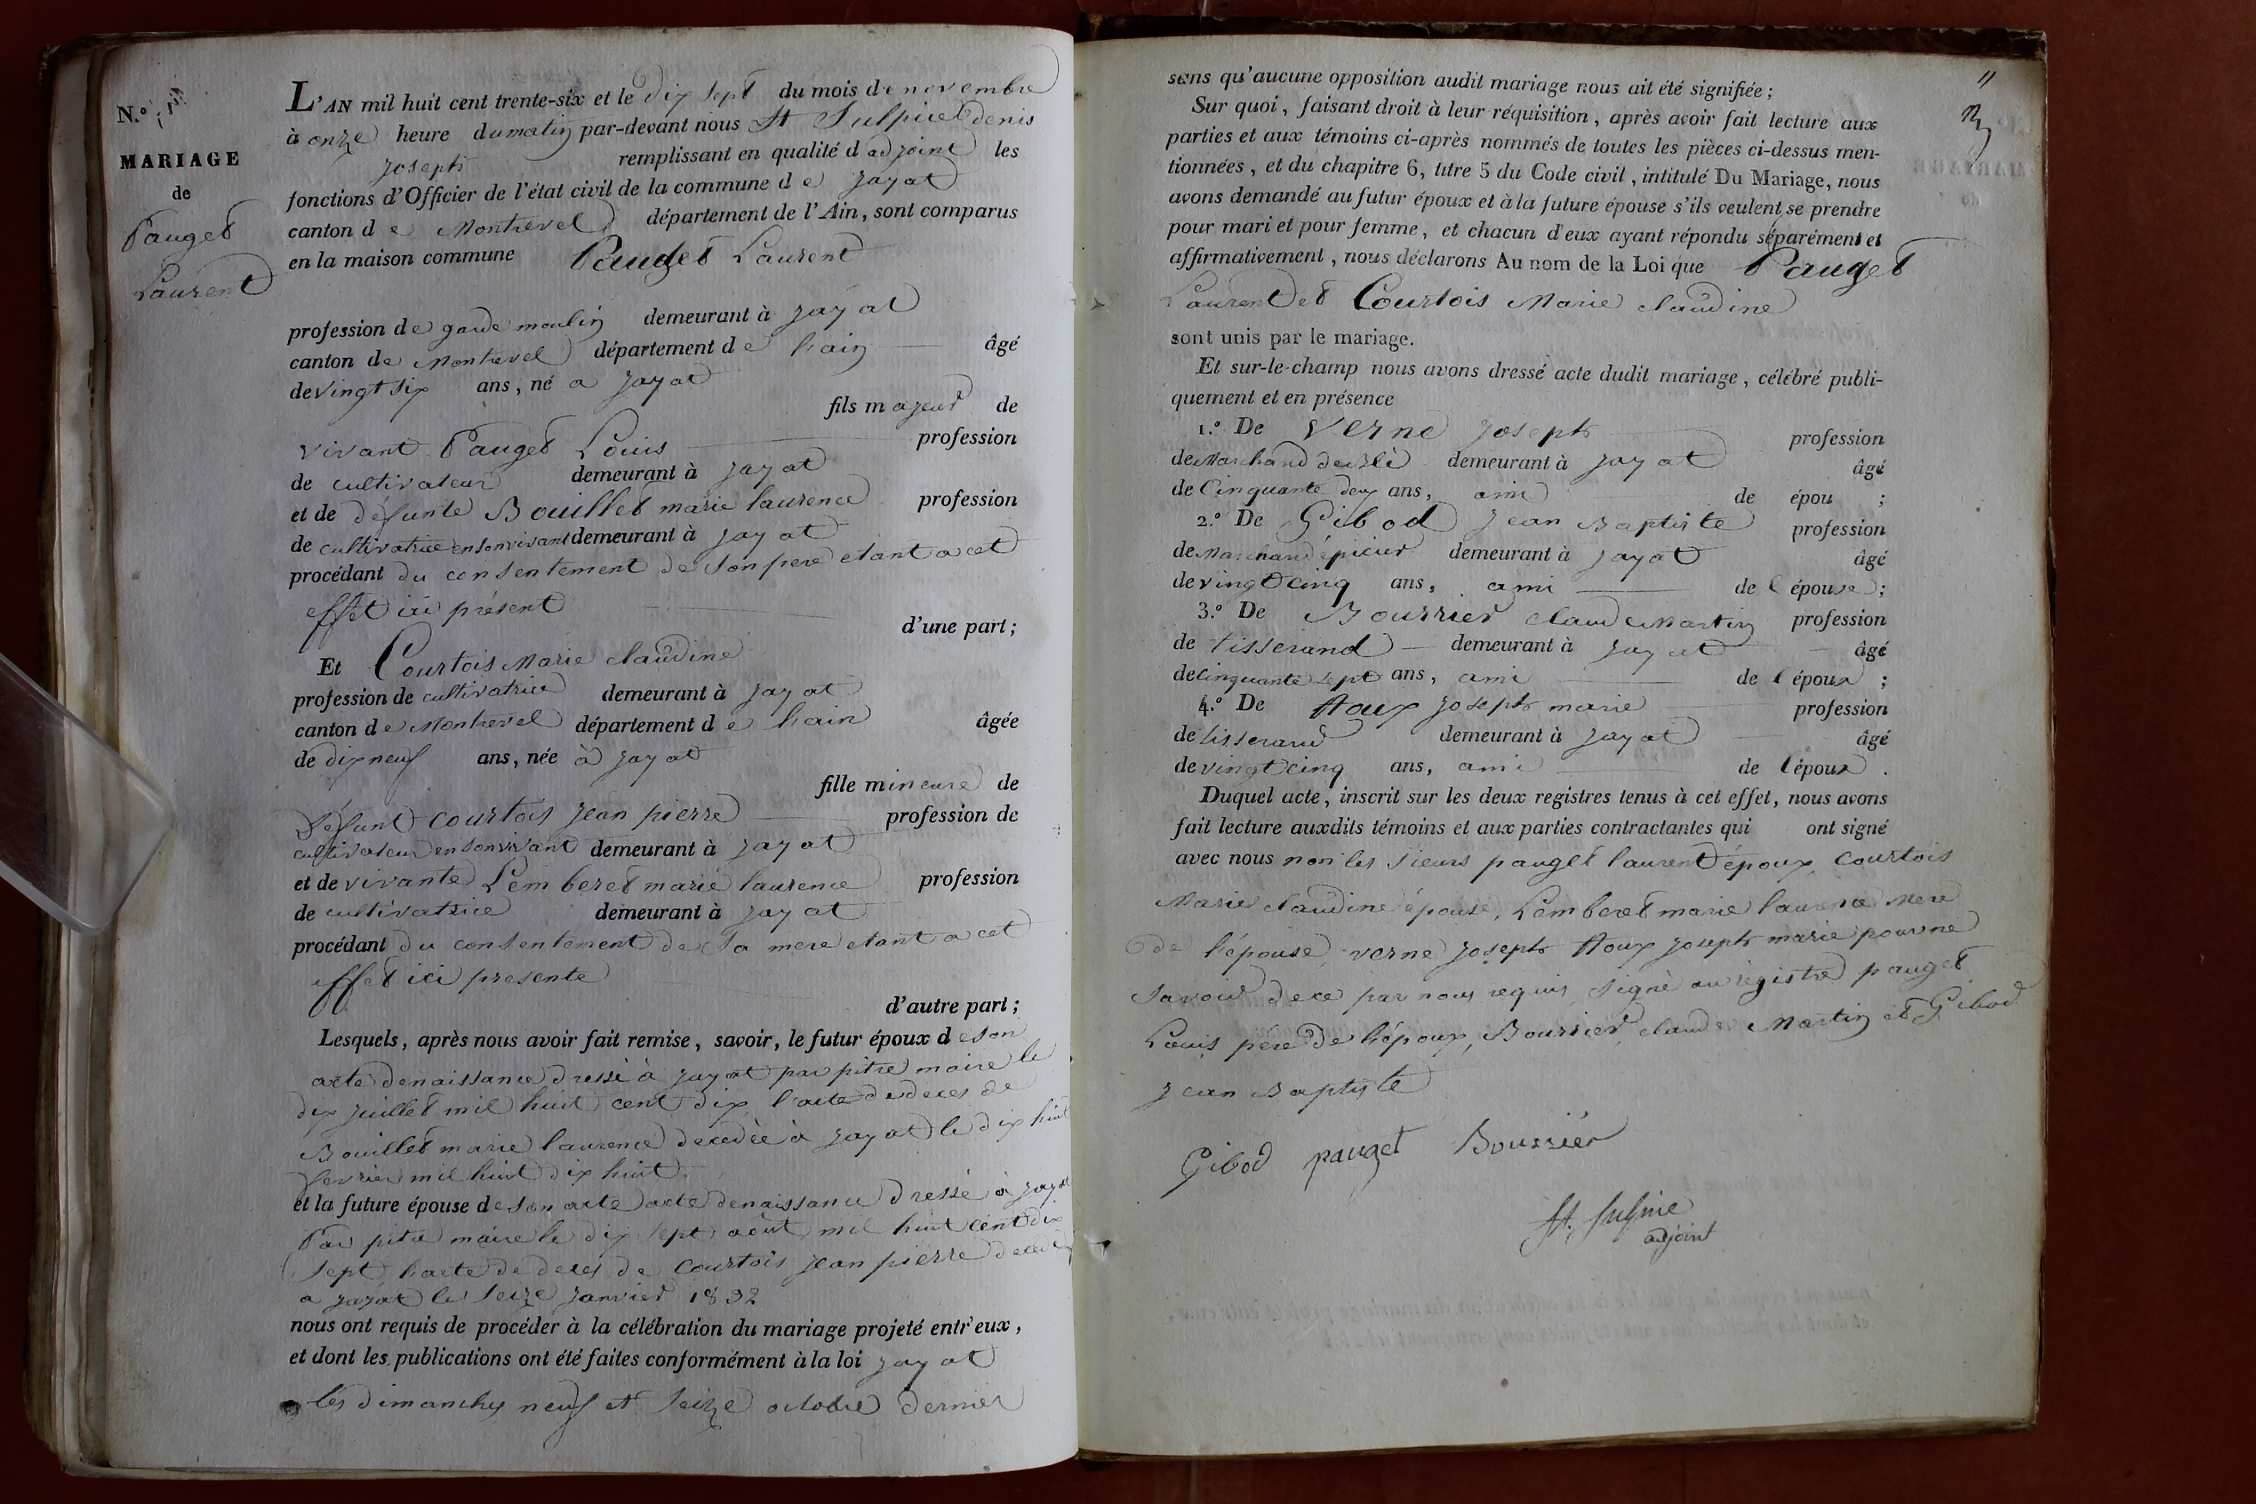 N.°
MARIAGE
de
Pauget
Laurent
L'AN mil huit cent trente-six et le dix sept du mois de novembre
à onze heure du matin par-devant nous St Sulpice denis
joseph remplissant en qualité d adjoint les
fonctions d'Officier de l'état civil de la commune d e jayat
canton d e Montrevel département de l'Ain, sont comparus
en la maison commune Pauget Laurent
profession de garde moulin demeurant à jayat
canton de Montrevel département d e l'ain âgé
de vingt six ans, né a jayat
fils majeur de
vivant Pauget Louis profession
de cultivateur demeurant à jayat
et de défunte Bouillet marie laurence profession
de cultivatrice en son vivant demeurant à jayat
procédant du consentement de son pere etant a cet
effet ici présent
d'une part;
Et Courtois Marie claudine
profession de cultivatrice demeurant à jayat
canton d e Montrevel département d e l'ain âgée
de dix neuf ans, née à jayat
fille mineure de
défunt courtois jean pierre profession de
cultivateur en son vivant demeurant à jayat
et de vivante Lemberet marie laurence profession
de cultivatrice demeurant à jayat
procédant du consentement de sa mere etant a cet
effet ici presente
d'autre part;
Lesquels, après nous avoir fait remise, savoir, le futur époux d e son
acte de naissance dressé à jayat par pitre maire le
dix juillet mil huit cent dix l'acte de deces de
Bouillet marie laurence decedée à jayat le dix huit
fevrier mil huit dix huit.
et la future épouse de son acte acte de naissance dressé à jayat
Par pitre maire le dix sept août mil huit cent dix
sept l'acte de deces de courtois jean pierre decedé
a jayat le seize janvier 1832
nous ont requis de procéder à la célébration du mariage projeté entr'eux,
et dont les publications ont été faites conformément à la loi jayat
les dimanches neuf et seize octobre dernier
11
sans qu'aucune opposition audit mariage nous ait été signifiée;
Sur quoi, faisant droit à leur réquisition, après avoir fait lecture aux
parties et aux témoins ci-après nommés de toutes les pièces ci-dessus men-
tionnées, et du chapitre 6, titre 5 du Code civil, intitulé Du Mariage, nous
avons demandé au futur époux et à la future épouse s'ils veulent se prendre
pour mari et pour femme, et chacun d'eux ayant répondu séparément et
affirmativement, nous déclarons Au nom de la Loi que Pauget
Laurent et Courtois Marie claudine
sont unis par le mariage.
Et sur-le-champ nous avons dressé acte dudit mariage, célébré publi-
quement et en présence
1.° De Verne joseph profession
de Marchand de blé demeurant à jayat âgé
de Cinquante deux ans, ami de épou ;
2.° De Gibod jean Baptiste profession
de Marchand épicier demeurant à jayat âgé
de vingt cinq ans, ami de l épouse;
3.° De Bourrier claude Martin profession
de tisserand demeurant à jayat âgé
de cinquante sept ans, ami de l époux ;
4.° De Houx joseph marie profession
de tisserand demeurant à jayat âgé
de vingt cinq ans, ami de l époux.
Duquel acte, inscrit sur les deux registres tenus à cet effet, nous avons
fait lecture auxdits témoins et aux parties contractantes qui ont signé
avec nous non les sieurs pauget laurent époux, courtois
Marie claudine épouse, Lemberet marie laurence mere
de l'épouse, verne joseph Houx joseph marie pour ne
savoir de ce par nous requis signé au registre pauget
Louis père de l'époux, Bourrier claude Martin et Gibod
jean Baptiste
Gibod pauget Bourrier
St. Sulpice
adjoint